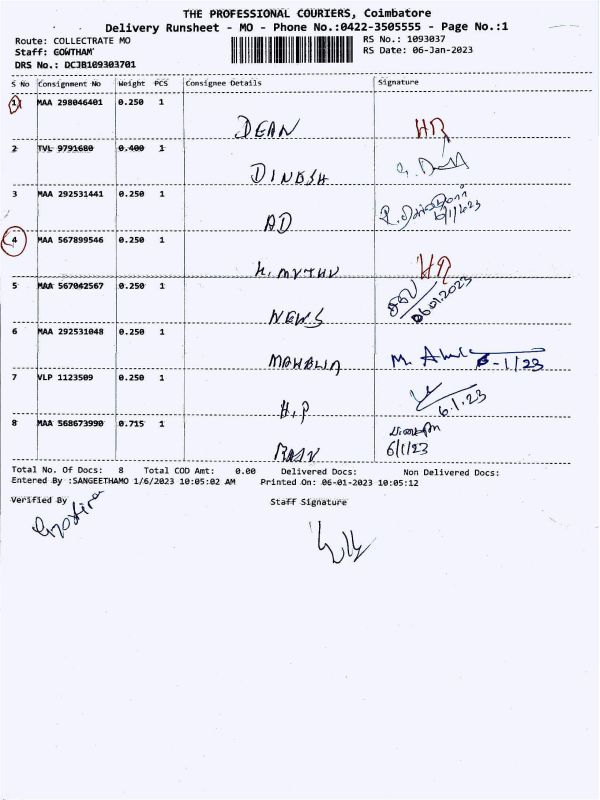 THE PROFESSIONAL COURIERS, Coimbatore
Delivery Runsheet - MO - Phone No.:0422-3505555 - Page No.:1
Route: COLLECTRATE MO RS No.: 1093037
Staff: GOWTHAM RS Date: 06-Jan-2023
DRS No.: DCJB109303701
S No Consignment No Weight PCS Consignee Details Signature
1 MAA 298046401 0.250 1
DEAN HR
2 TVL 9791680 0.400 1
DINESH
3 MAA 292531441 0.250 1
AD 6/1/23
4 MAA 567899546 0.250 1
H. MUTHU HR
5 MAA 567042567 0.250 1
NEWS 06.01.2023
6 MAA 292531048 0.250 1
M. 6-1/23
7 VLP 1123509 0.250 1
H.P 6.1.23
8 MAA 568673990 0.715 1
6/1/23
Total No. Of Docs: 8 Total COD Amt: 0.00 Delivered Docs: Non Delivered Docs:
Entered By :SANGEETHAMO 1/6/2023 10:05:02 AM Printed On: 06-01-2023 10:05:12
Verified By Staff Signature